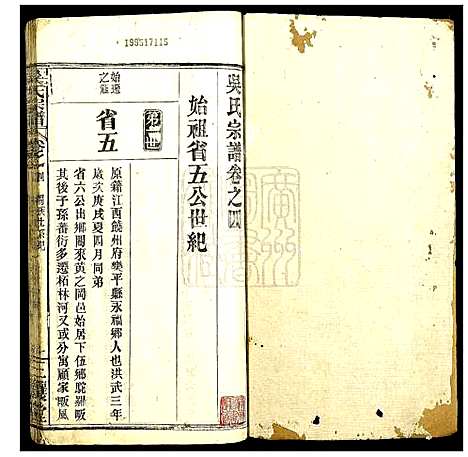 199517115
吳氏宗譜卷之四
始祖省五公世紀
第一世
始遷之祖
省五
原籍江西饒州府樂平縣永福鄉人也洪武三年
歲次庚戌夏四月同弟
省六公出鄉關來黃之岡邑始居下伍鄉駝羅畈
其後子孫蕃衍多遷栢林河又或分寓顧家畈風
吳氏宗譜
卷之四